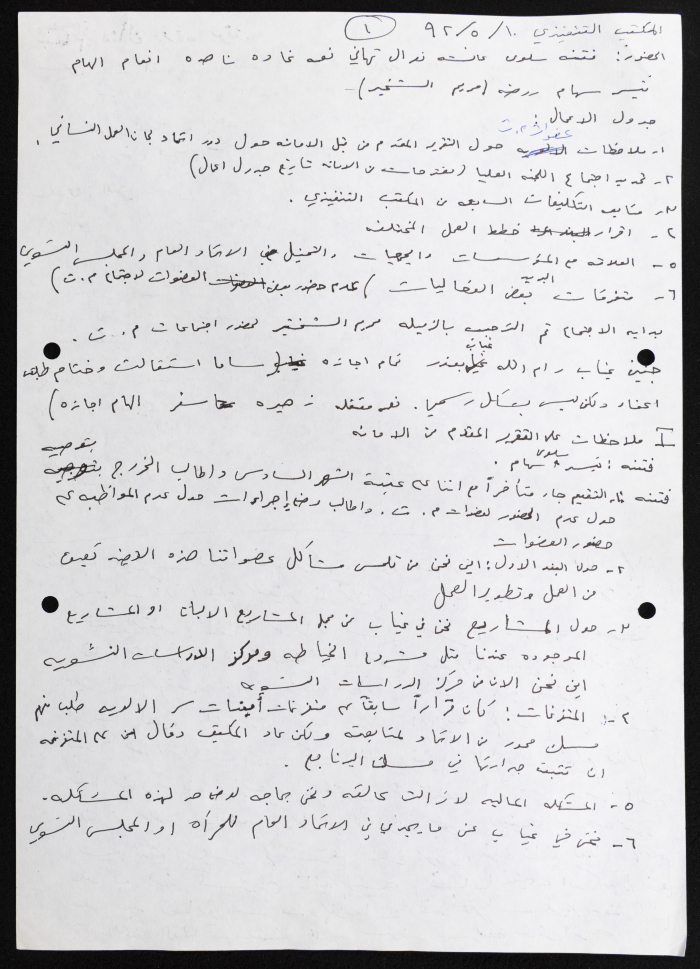 المكتب التنفيذي ١٠/٥/٩٢ ١
الحضور: فتنه سلوى عائشه نوال تهاني نعمه غاده ناصره انعام الهام
تيسر سهام روضه (مريم الشخير)
جدول الاعمال:
١- ملاحظات عضوات م.ت حول التقرير المقدم من قبل الامانه حول دور اتحاد لجان العمل النسائي.
٢- تحديد اجتماع اللجنه العليا (مقترحات من الامانه تاريخ جدول اعمال)
٣- متابعه التكليفات السابقه من المكتب التنفيذي.
٤- اقرار خطط العمل المختلفه
٥- العلاقه مع المؤسسات والجمعيات والتمثيل في الاتحاد العام والمجلس النسوي
٦- متفرقات بعض الفعاليات (عدم حضور بعض العضوات لاجتماع م.ت)
بدايه الاجتماع تم الترحيب بالزميله مريم الشخير لحضور اجتماعات م.ت.
جنين غياب رام الله غياب بعذر تمام اجازه ساما استقالت وختام طلبت
اعفاء ولكن ليس بشكل رسمي. نعمه معتقله زهيره سفر الهام اجازه)
I ملاحظات على التقرير المقدم من الامانه
فتنه: تيسر سلوى سهام.
فتنه ١- التقييم جاء متأخراً مع اننا على عتبة الشهر السادس واطالب الخروج بتوصيه
حول عدم الحضور لعضوات م.ت. واطالب وضع إجراءات حول عدم المواظبه على
حضور العضوات
٢- حول البند الاول: اين نحن من تلمس مشاكل عضواتنا هذه الارضيه تعيق
من العمل وتطوير العمل
٣- حول المشاريع نحن في غياب عن مجمل المشاريع الاليات او المشاريع
الموجوده عندنا مثل مشروع الخياطه ومركز الدراسات النسويه
اين نحن الان من مركز الدراسات النسويه
٤- المتفرغات: كان قراراً سابقاً على متفرغات أمينات سر الالويه طلب منهم
مسلك محور من الاتحاد لمتابعته ولكن عاد المكتب وقال ان على المتفرغه
ان تثبت جدارتها في مسلك البرنامج.
٥- المشكله الماليه لازالت عالقه ونحن بحاجه لوضع حد لهذه المشكله.
٦- نحن في غياب عن ما يجري في الاتحاد العام للمرأه او المجلس النسوي